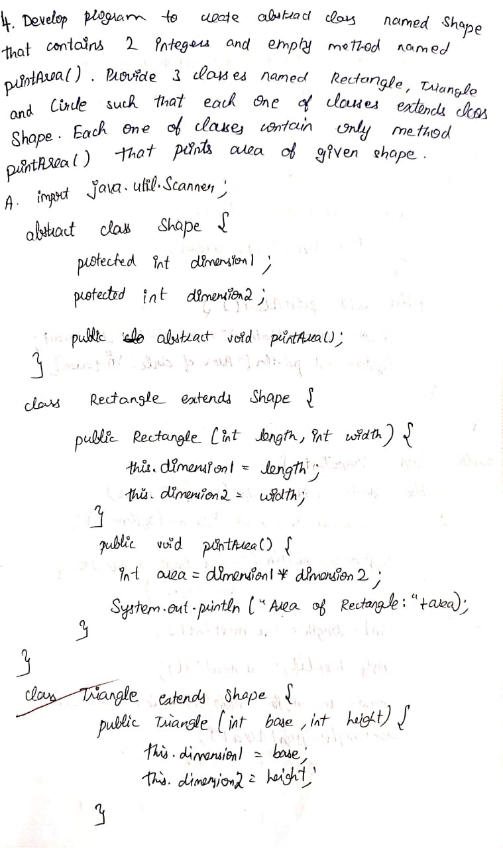 4. Develop program to create abstract class named Shape
that contains 2 integers and empty method named
printArea(). Provide 3 classes named Rectangle, Triangle
and Circle such that each one of classes extends class
Shape. Each one of classes contain only method
printArea() that prints area of given shape.
A. import java.util.Scanner;
abstract class Shape {
protected int dimension1;
protected int dimension2;
public abstract void printArea();
}
class Rectangle extends Shape {
public Rectangle (int length, int width) {
this.dimension1 = length;
this.dimension2 = width;
}
public void printArea() {
int area = dimension1 * dimension2;
System.out.println ("Area of Rectangle: "+area);
}
}
class Triangle extends Shape {
public Triangle (int base, int height) {
this.dimension1 = base;
this.dimension2 = height;
}